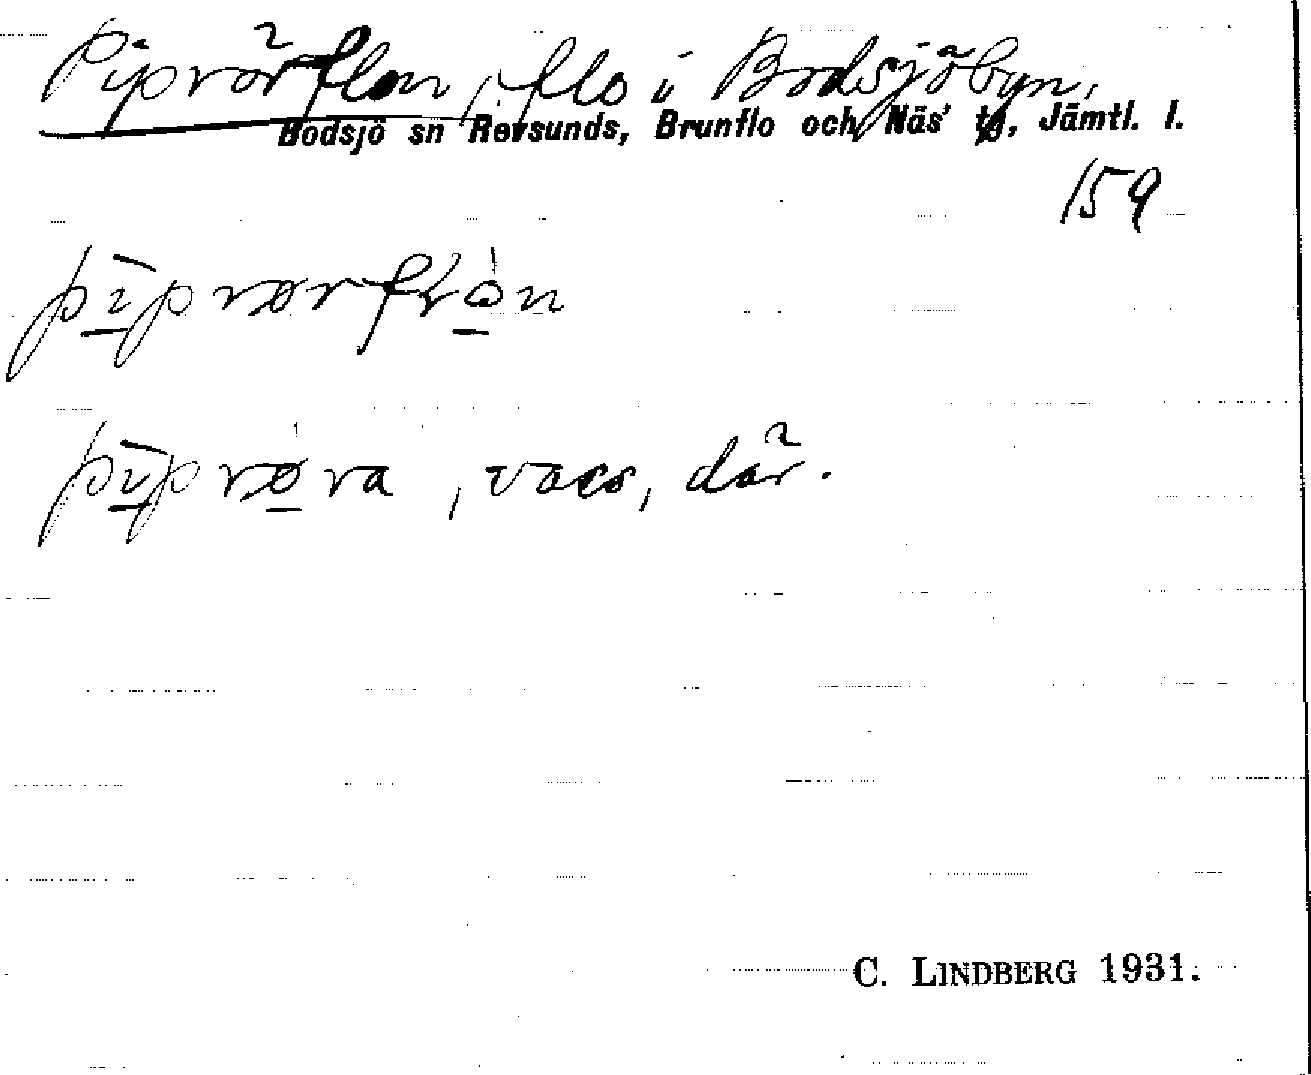 Piprörflon, flo i Bodsjöbyn,
Bodsjö sn Revsunds, Brunflo och Näs' tg, Jämtl. l.
159
pìprørflòn
pìprøra, vaxs, där.
C. LINDBERG 1931.